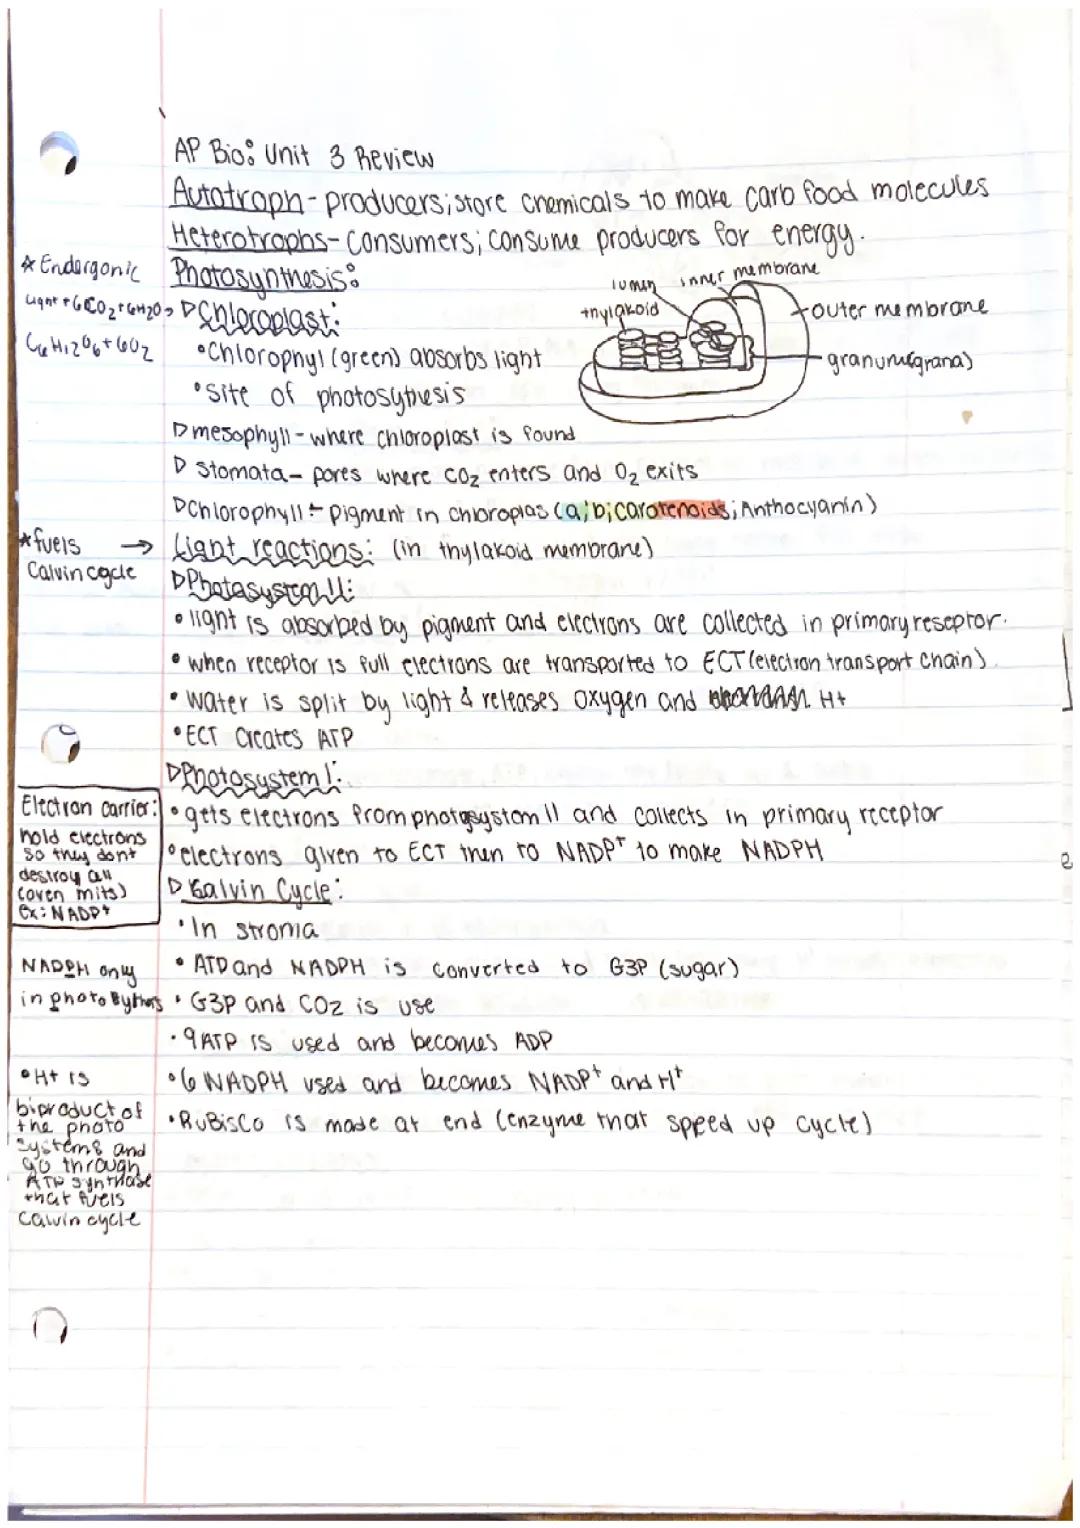 AP Bio: Unit 3 Review
Autotroph - producers; store chemicals to make carb food molecules
Heterotrophs - consumers; consume producers for energy.
* Endergonic
Photosynthesis:
Light + 6CO2 + 6H2O →
C6H12O6 + 6O2
▷ Chloroplast:
• Chlorophyl (green) absorbs light
• Site of photosythesis
lumen
inner membrane
thylakoid
outer membrane
granum(grana)
▷ mesophyll - where chloroplast is found
▷ Stomata - pores where CO2 enters and O2 exits
▷ Chlorophyll - pigment in chloroplas (a; b; carotenoids; Anthocyanin)
* fuels →
Calvin cycle
Light reactions: (in thylakoid membrane)
▷ Photosystem II:
• light is absorbed by pigment and electrons are collected in primary reseptor.
• when receptor is full electrons are transported to ECT (electron transport chain)
• Water is split by light & releases oxygen and H+
• ECT creates ATP
▷ Photosystem I:
Electron carrier:
hold electrons
so they dont
destroy all
(oven mits)
ex: NADP+
• gets electrons from photosystem II and collects in primary receptor
• electrons given to ECT then to NADP+ to make NADPH
▷ Calvin Cycle:
• In stroma
• ATP and NADPH is converted to G3P (sugar)
NADPH only
in photo
• G3P and CO2 is use
• 9 ATP is used and becomes ADP
• 6 NADPH used and becomes NADP+ and H+
• RuBisCo is made at end (enzyme that speed up cycle)
• H+ is
biproduct of
the photo
systems and
go through
ATP synthase
that fuels
Calvin cycle